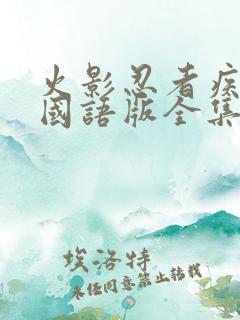 火影忍者疾
國語版全集
埃洛特
未经同意禁止转载